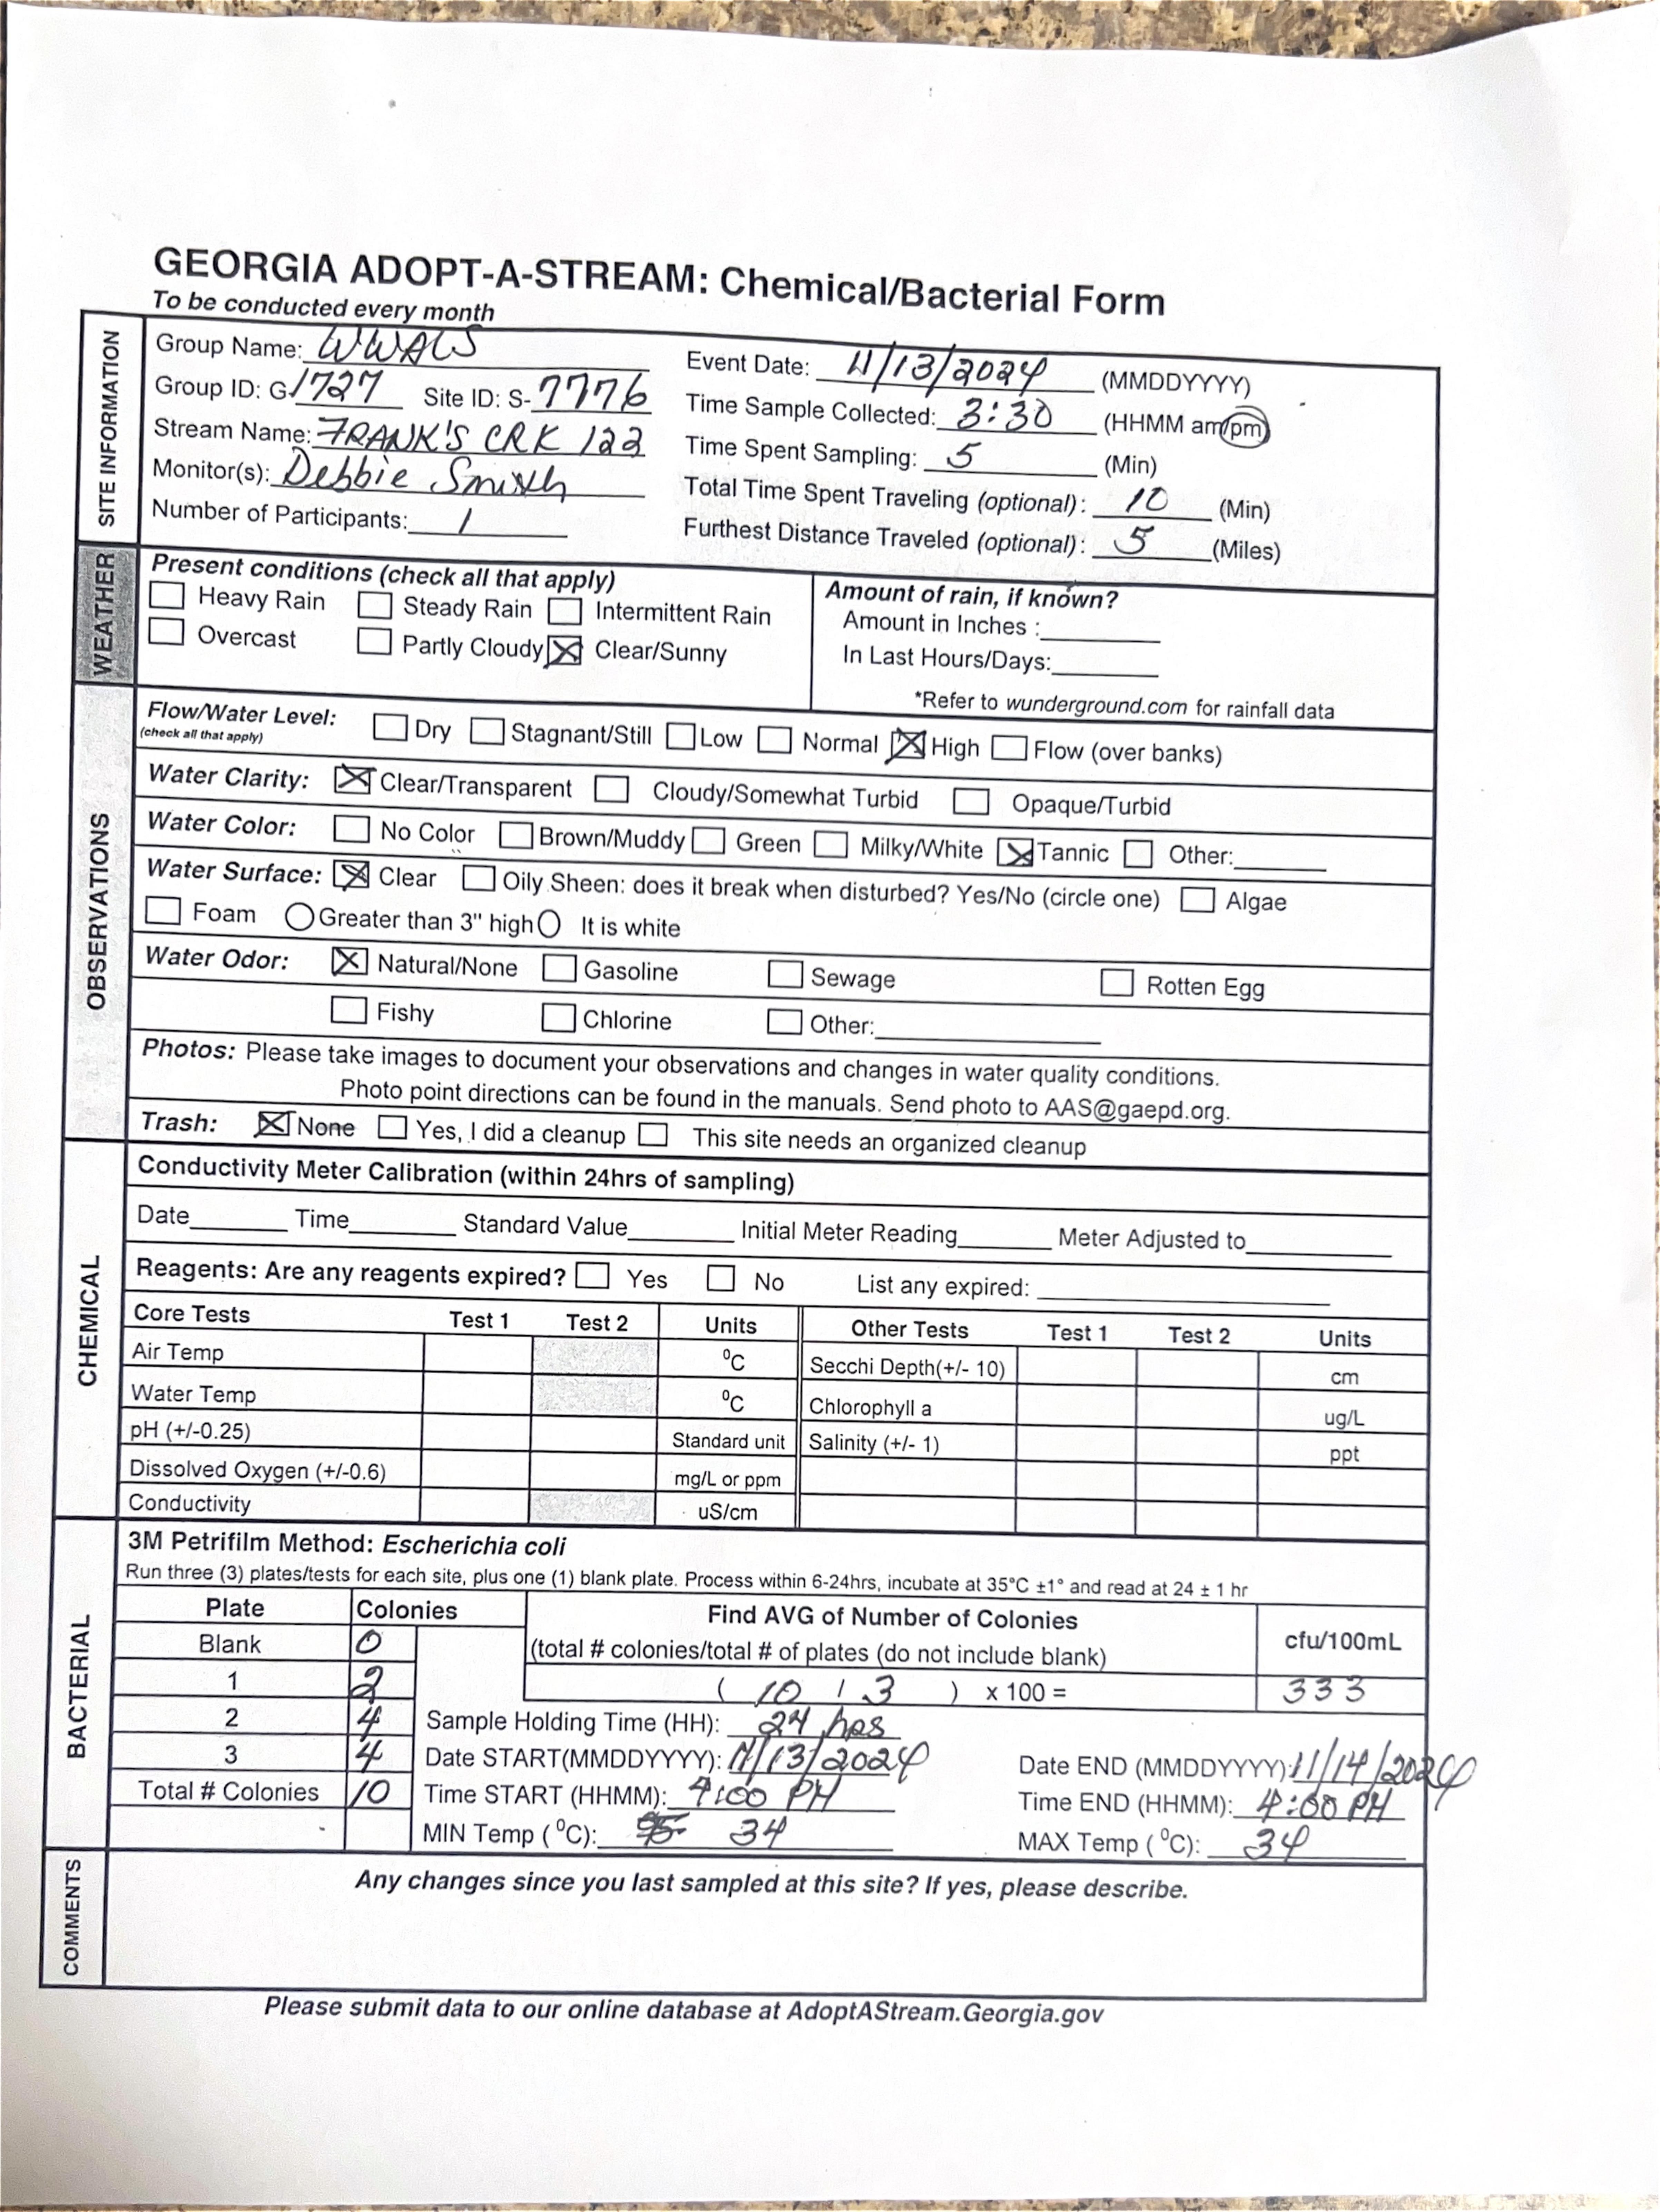 GEORGIA ADOPT-A-STREAM: Chemical/Bacterial Form
To be conducted every month
SITE INFORMATION
Group Name: WWALS
Group ID: G-1727 Site ID: S-7776
Stream Name: FRANK'S CRK 122
Monitor(s): Debbie Smith
Number of Participants: 1
Event Date: 11/13/2024 (MMDDYYYY)
Time Sample Collected: 3:30 (HHMM am/pm)
Time Spent Sampling: 5 (Min)
Total Time Spent Traveling (optional): 10 (Min)
Furthest Distance Traveled (optional): 5 (Miles)
WEATHER
Present conditions (check all that apply)
Heavy Rain Steady Rain Intermittent Rain
Overcast Partly Cloudy ☒ Clear/Sunny
Amount of rain, if known?
Amount in Inches :
In Last Hours/Days:
*Refer to wunderground.com for rainfall data
OBSERVATIONS
Flow/Water Level: Dry Stagnant/Still Low Normal ☒ High Flow (over banks)
(check all that apply)
Water Clarity: ☒ Clear/Transparent Cloudy/Somewhat Turbid Opaque/Turbid
Water Color: No Color Brown/Muddy Green Milky/White ☒ Tannic Other:
Water Surface: ☒ Clear Oily Sheen: does it break when disturbed? Yes/No (circle one) Algae
Foam Greater than 3" high It is white
Water Odor: ☒ Natural/None Gasoline Sewage Rotten Egg
Fishy Chlorine Other:
Photos: Please take images to document your observations and changes in water quality conditions.
Photo point directions can be found in the manuals. Send photo to AAS@gaepd.org.
Trash: ☒ None Yes, I did a cleanup This site needs an organized cleanup
CHEMICAL
Conductivity Meter Calibration (within 24hrs of sampling)
Date Time Standard Value Initial Meter Reading Meter Adjusted to
Reagents: Are any reagents expired? Yes No List any expired:
Core Tests Test 1 Test 2 Units Other Tests Test 1 Test 2 Units
Air Temp ⁰C Secchi Depth(+/- 10) cm
Water Temp ⁰C Chlorophyll a ug/L
pH (+/-0.25) Standard unit Salinity (+/- 1) ppt
Dissolved Oxygen (+/-0.6) mg/L or ppm
Conductivity uS/cm
BACTERIAL
3M Petrifilm Method: Escherichia coli
Run three (3) plates/tests for each site, plus one (1) blank plate. Process within 6-24hrs, incubate at 35°C ±1° and read at 24 ± 1 hr
Plate Colonies Find AVG of Number of Colonies cfu/100mL
Blank 0 (total # colonies/total # of plates (do not include blank)
1 2 ( 10 / 3 ) x 100 = 333
2 4 Sample Holding Time (HH): 24 hrs
3 4 Date START(MMDDYYYY): 11/13/2024 Date END (MMDDYYYY): 11/14/2024
Total # Colonies 10 Time START (HHMM): 4:00 PM Time END (HHMM): 4:00 PM
MIN Temp (⁰C): 34 MAX Temp (⁰C): 34
COMMENTS
Any changes since you last sampled at this site? If yes, please describe.
Please submit data to our online database at AdoptAStream.Georgia.gov